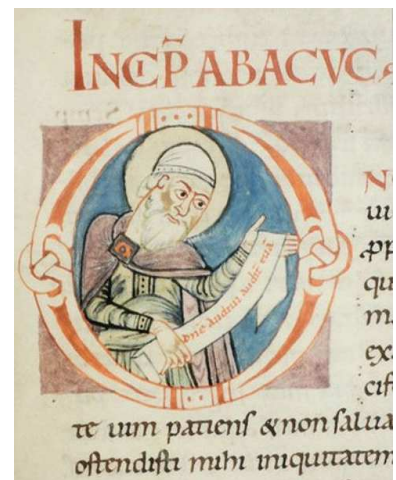 INCIP̃ ABACVC
dñe audiui audit̃ tuã
qu
ex
te uim patienſ & non ſalua
oſtendiſti mihi iniquitatem